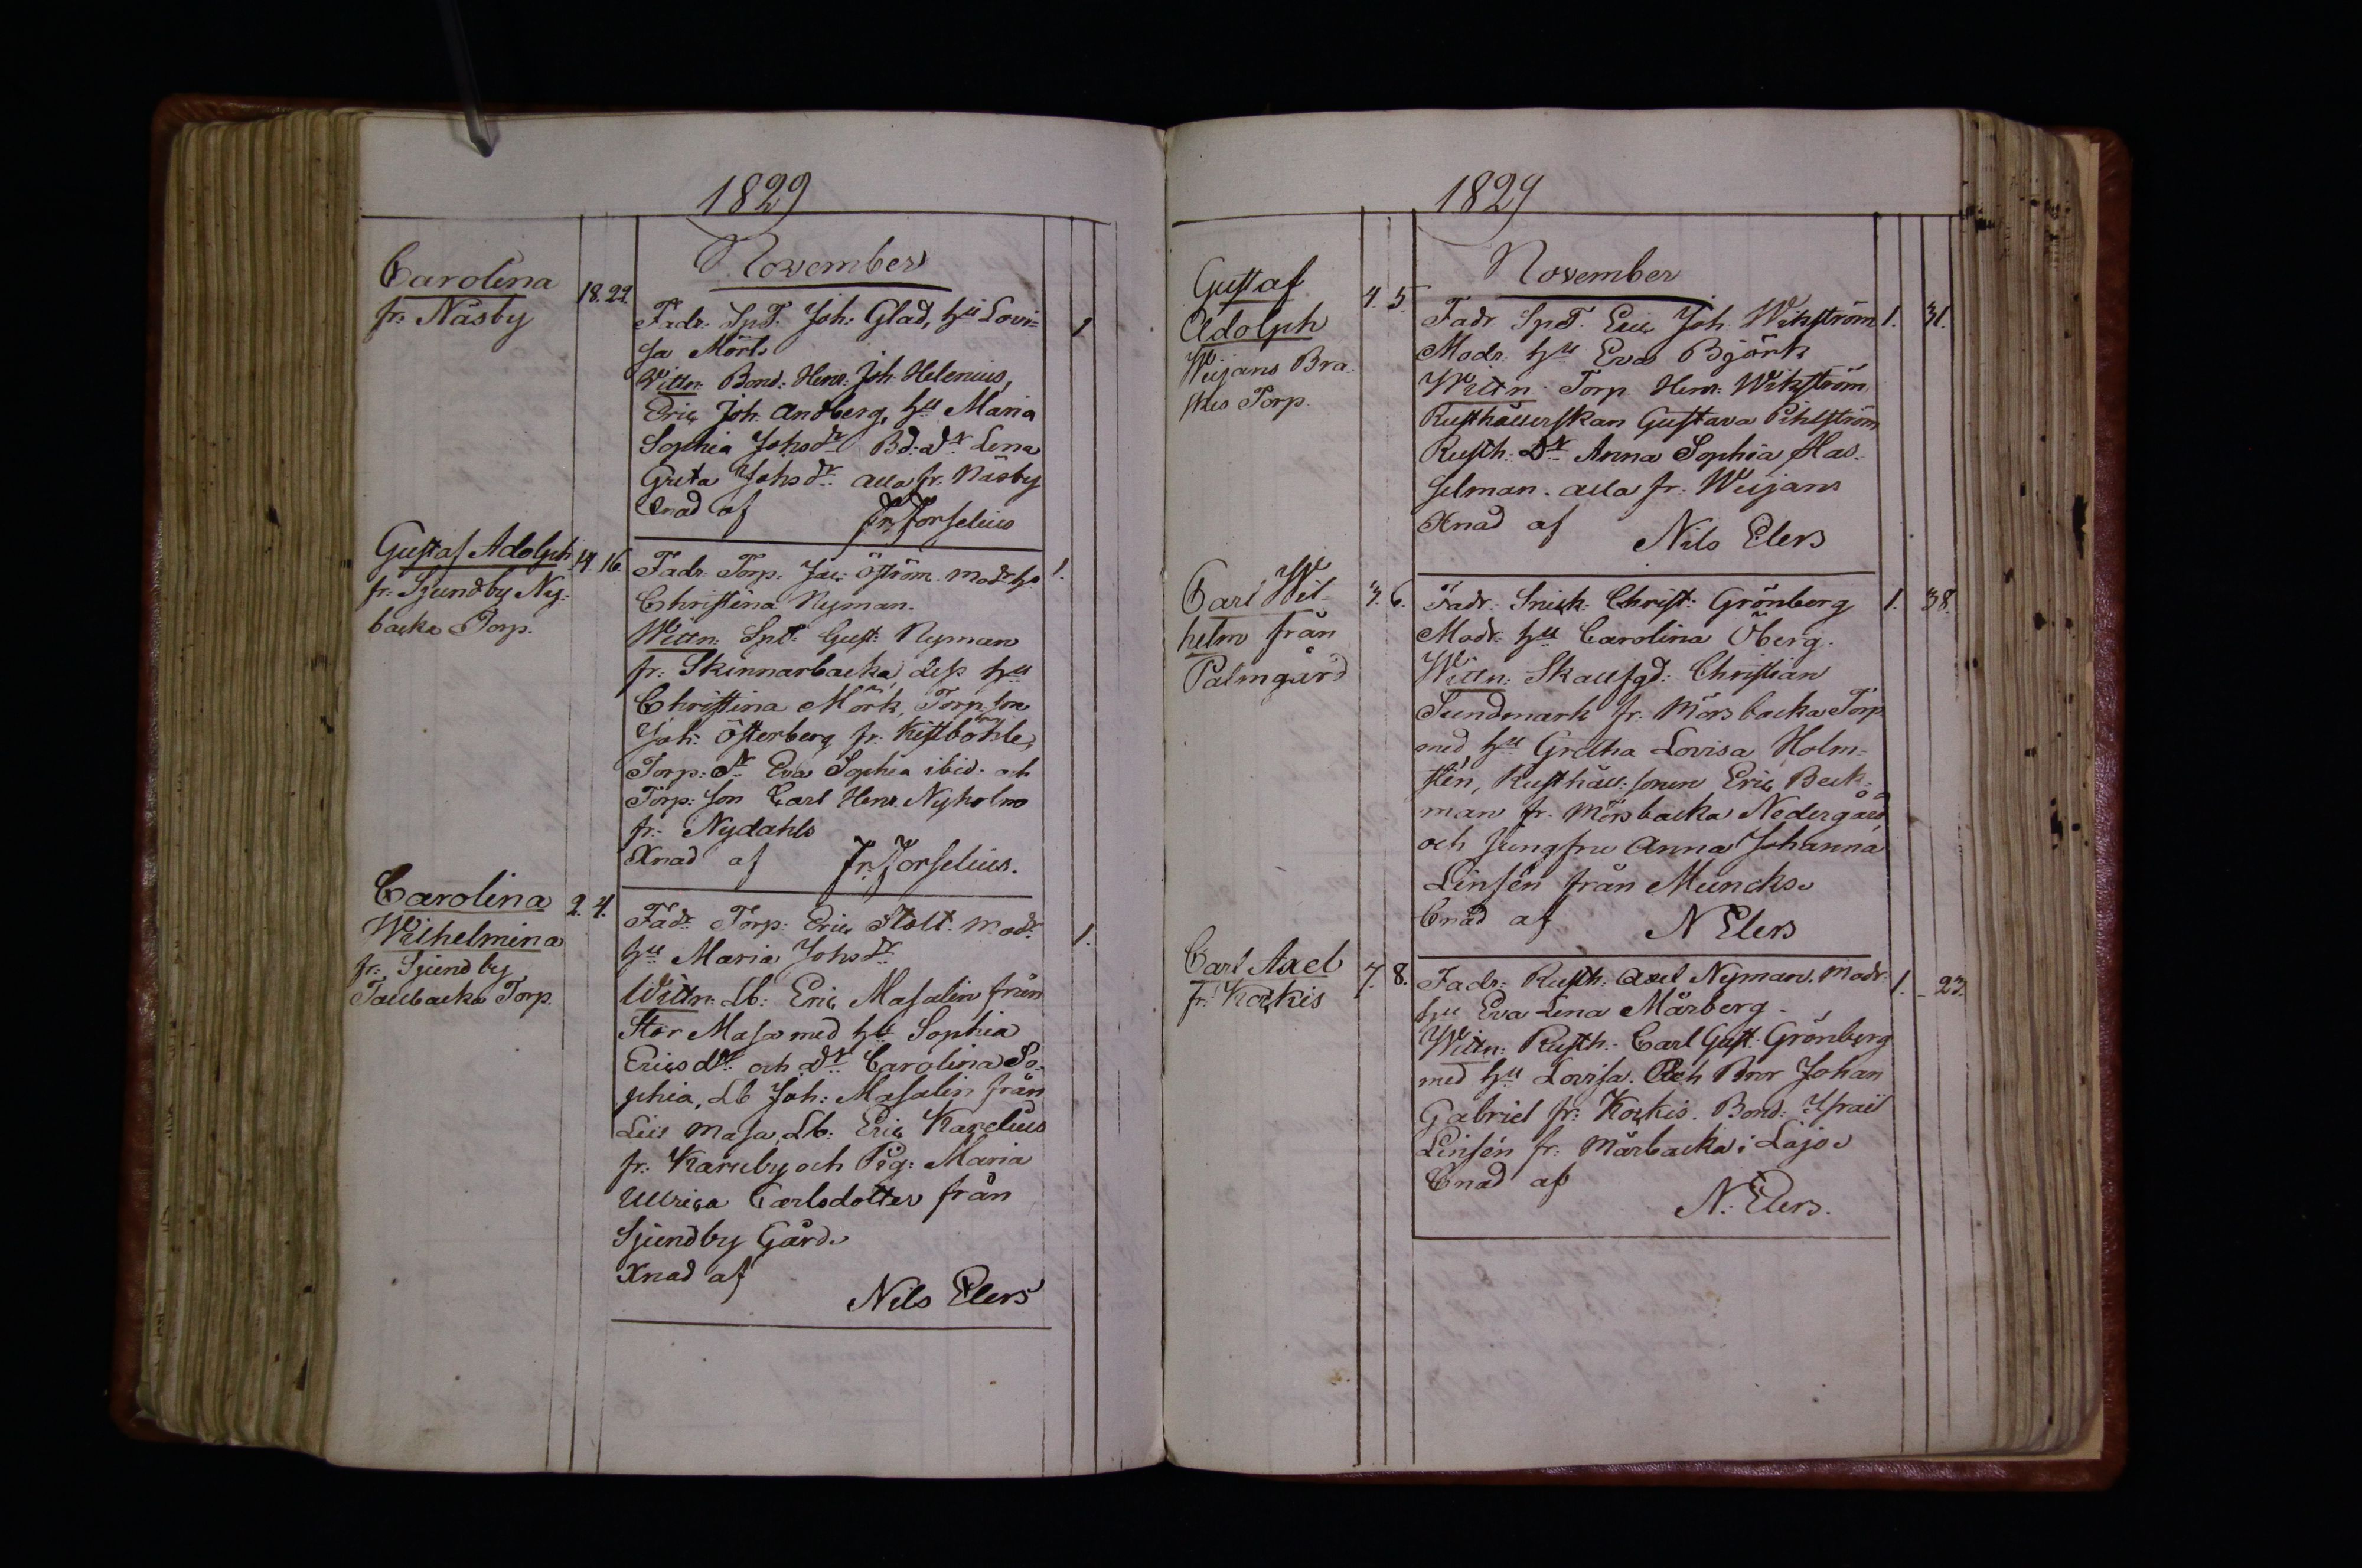 1829
November
Carolina
fr: Näsby
18. 22.
Fadr: SpT. Joh: Glad, hu Lovi=
sa Mört
Wittn: Bond: Henr: Joh Helenius,
Eric Joh Andberg, hu Maria
Sophia Johsdr Bd:dr Lena
Greta Johsdr alla fr. Näsby
Xnad af Fr. Forselius
1
Gustaf Adolph
fr: Sjundby Ny:
backa Torp.
14. 16.
Fadr: Torp: Jac: Öström. modr hu
Christina Nyman.
Wittn: SpT: Gust: Nyman
fr: Skinnarbacka, dess hu
Christina Mörk, Torp: son
Joh: Österberg fr. Kistböhle,
Torp: dr Eva Sophia ibid. och
Torp: son Carl Henr. Nyholm
fr: Nydahls
Xnad af Fr. Forselius.
1.
Carolina
Wilhelmina
fr: Sjundby
Tallbacka Torp.
2. 4.
Fadr Torp: Eric Stolt. modr:
hu Maria Johsdr
Wittn: Lb: Eric Masalin från
Stor Masa med hu Sophia
Ericsdr: och dr: Carolina So-
phia, Lb Joh: Masalin från
Lill Masa, Lb: Eric Karelius
fr: Karuby och Pig: Maria
Ullrica Carlsdotter från
Sjundby Gård
Xnad af
Nils Elers
1.
1829
November
Gustaf
Adolph
Weijans Bra
skes Torp.
4. 5.
Fadr SpT. Eric Joh Wikström
Modr: hu Eva Björk
Wittn: Torp Henr: Wikström
Rusthållerskan Gustava Pihlström
Rusth: dr Anna Sophia Has-
selman. alla fr: Weijans
Xnad af Nils Elers
1. 31.
Carl Wil-
helm från
Palmgård
3. 6.
Fadr: Snick: Christ: Grönberg
Modr: hu Carolina Öberg.
Wittn: Skallfgd: Christian
Sundmark fr: Mörsbacka Torp
med hu Gretha Lovisa Holm-
stén, Rusthåll: sonen Eric Beck-
man fr. Mörsbacka Nedergård,
och Jungfru Anna Johanna
Linsén från Muncks
Cnad af N Elers
1. 38.
Carl Axel
fr: Korkis
7. 8.
Fadr: Rusth: Axel Nyman. Modr:
hu Eva Lena Mårberg.
Wittn: Rusth: Carl Gust. Grönberg
med hu Lovisa. Och Bror Johan
Gabriel fr: Korkis. Bond: Israël
Linsén fr: Mårbacka i Lojo
Cnad af
N. Elers.
1. 23.